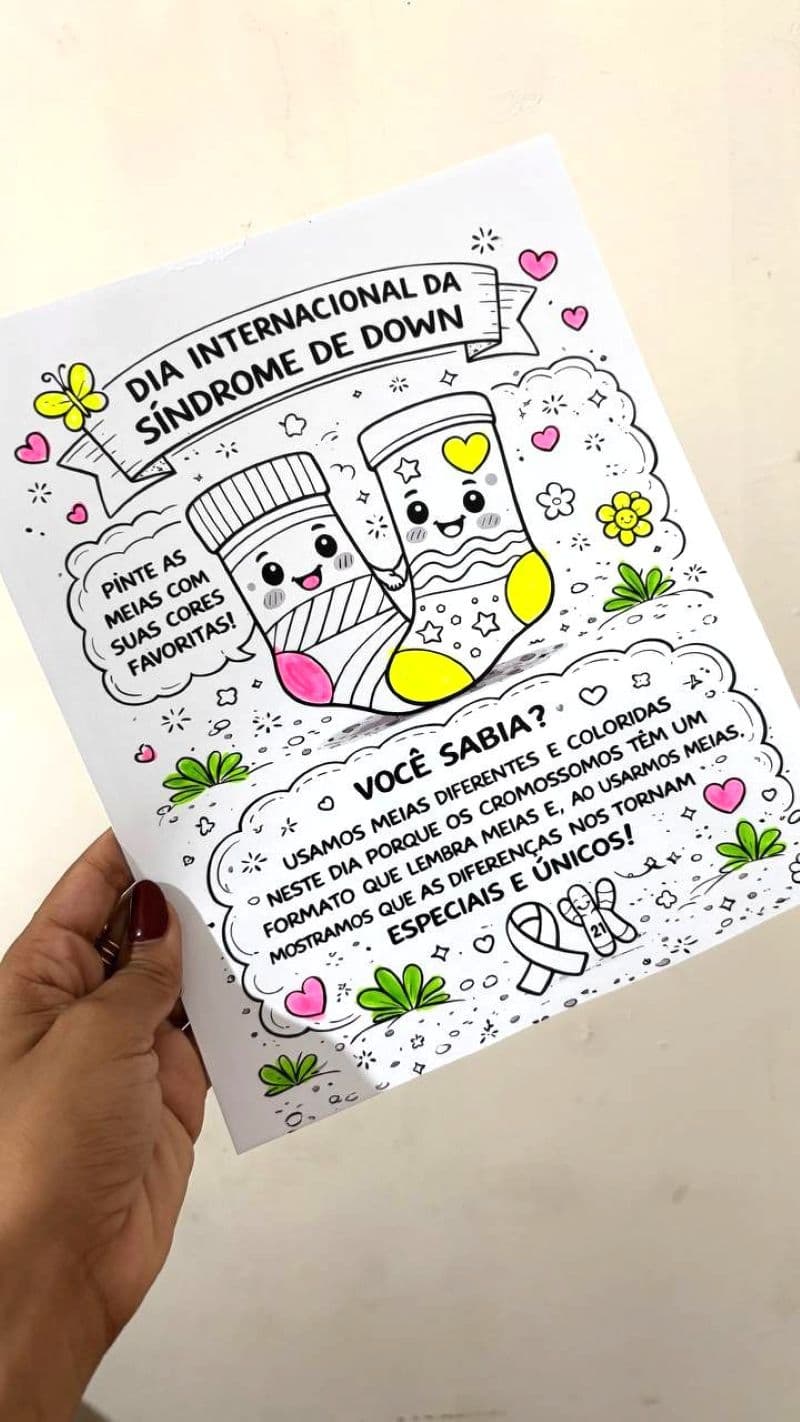 DIA INTERNACIONAL DA
SÍNDROME DE DOWN
PINTE AS
MEIAS COM
SUAS CORES
FAVORITAS!
VOCÊ SABIA?
USAMOS MEIAS DIFERENTES E COLORIDAS
NESTE DIA PORQUE OS CROMOSSOMOS TÊM UM
FORMATO QUE LEMBRA MEIAS E, AO USARMOS MEIAS.
MOSTRAMOS QUE AS DIFERENÇAS NOS TORNAM
ESPECIAIS E ÚNICOS!
21